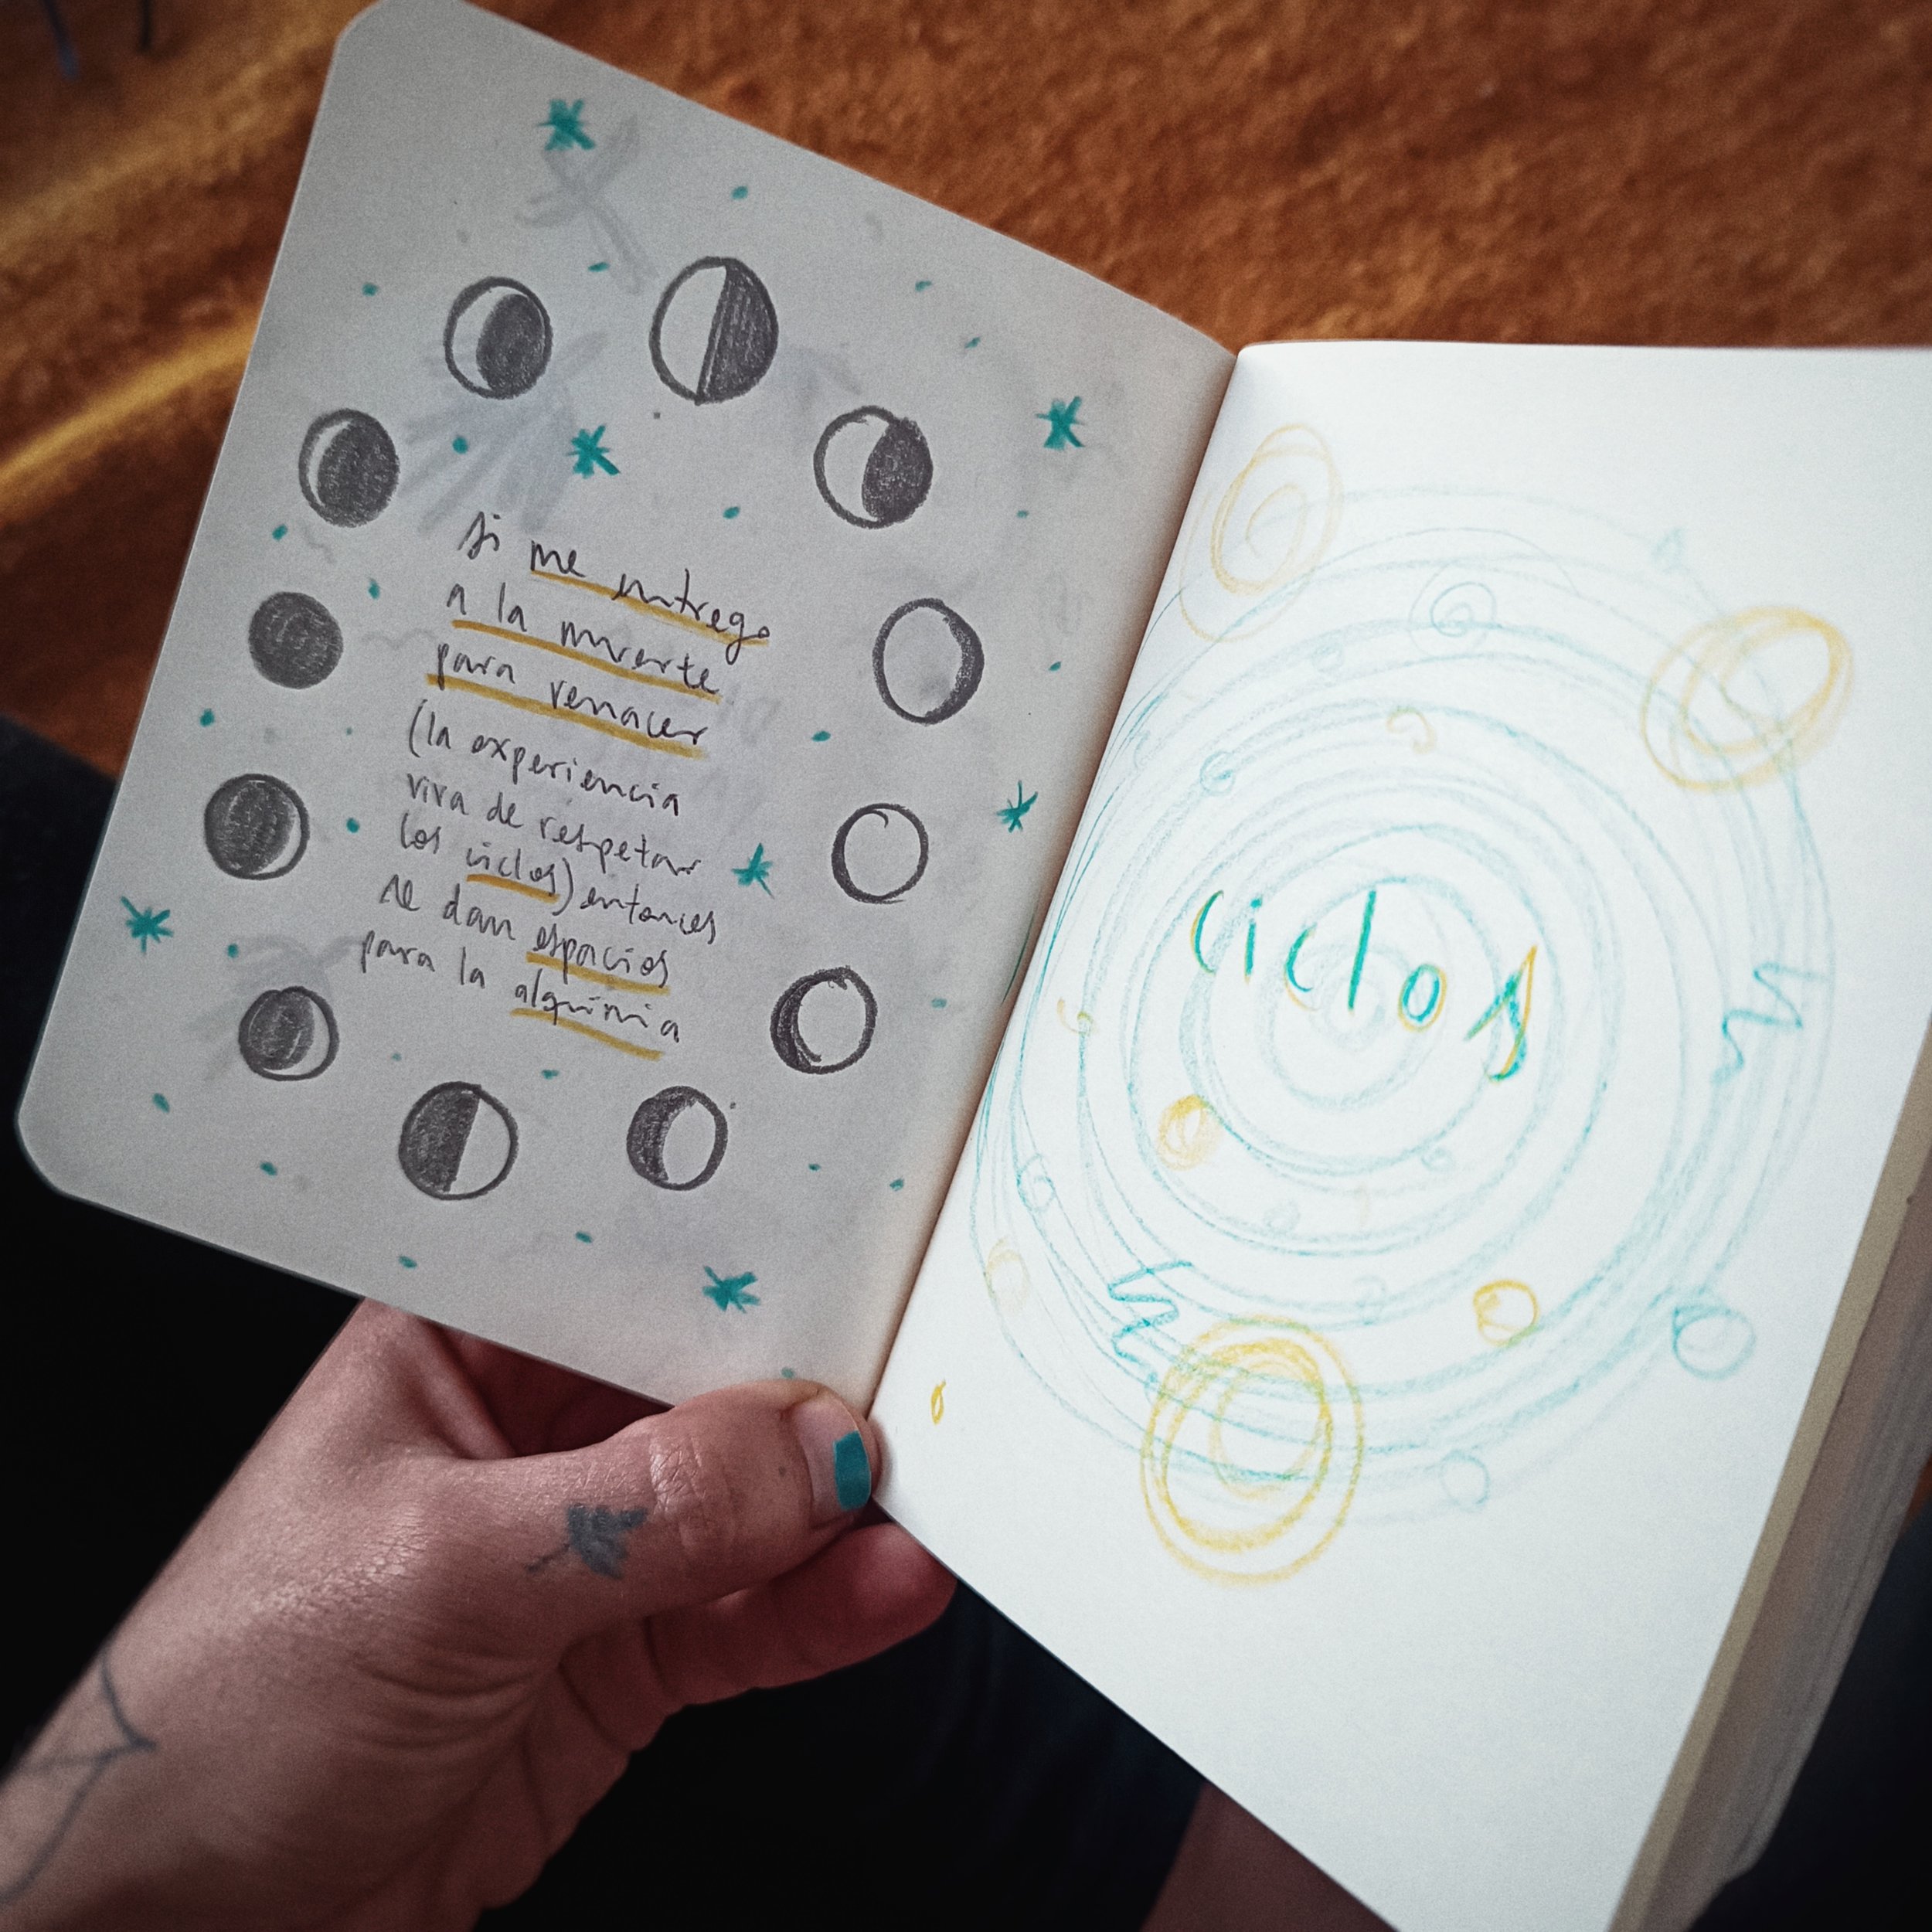 si me entrego
a la muerte
para renacer
(la experiencia
viva de respetar
los ciclos) entonces
se dan espacios
para la alquimia
ciclos